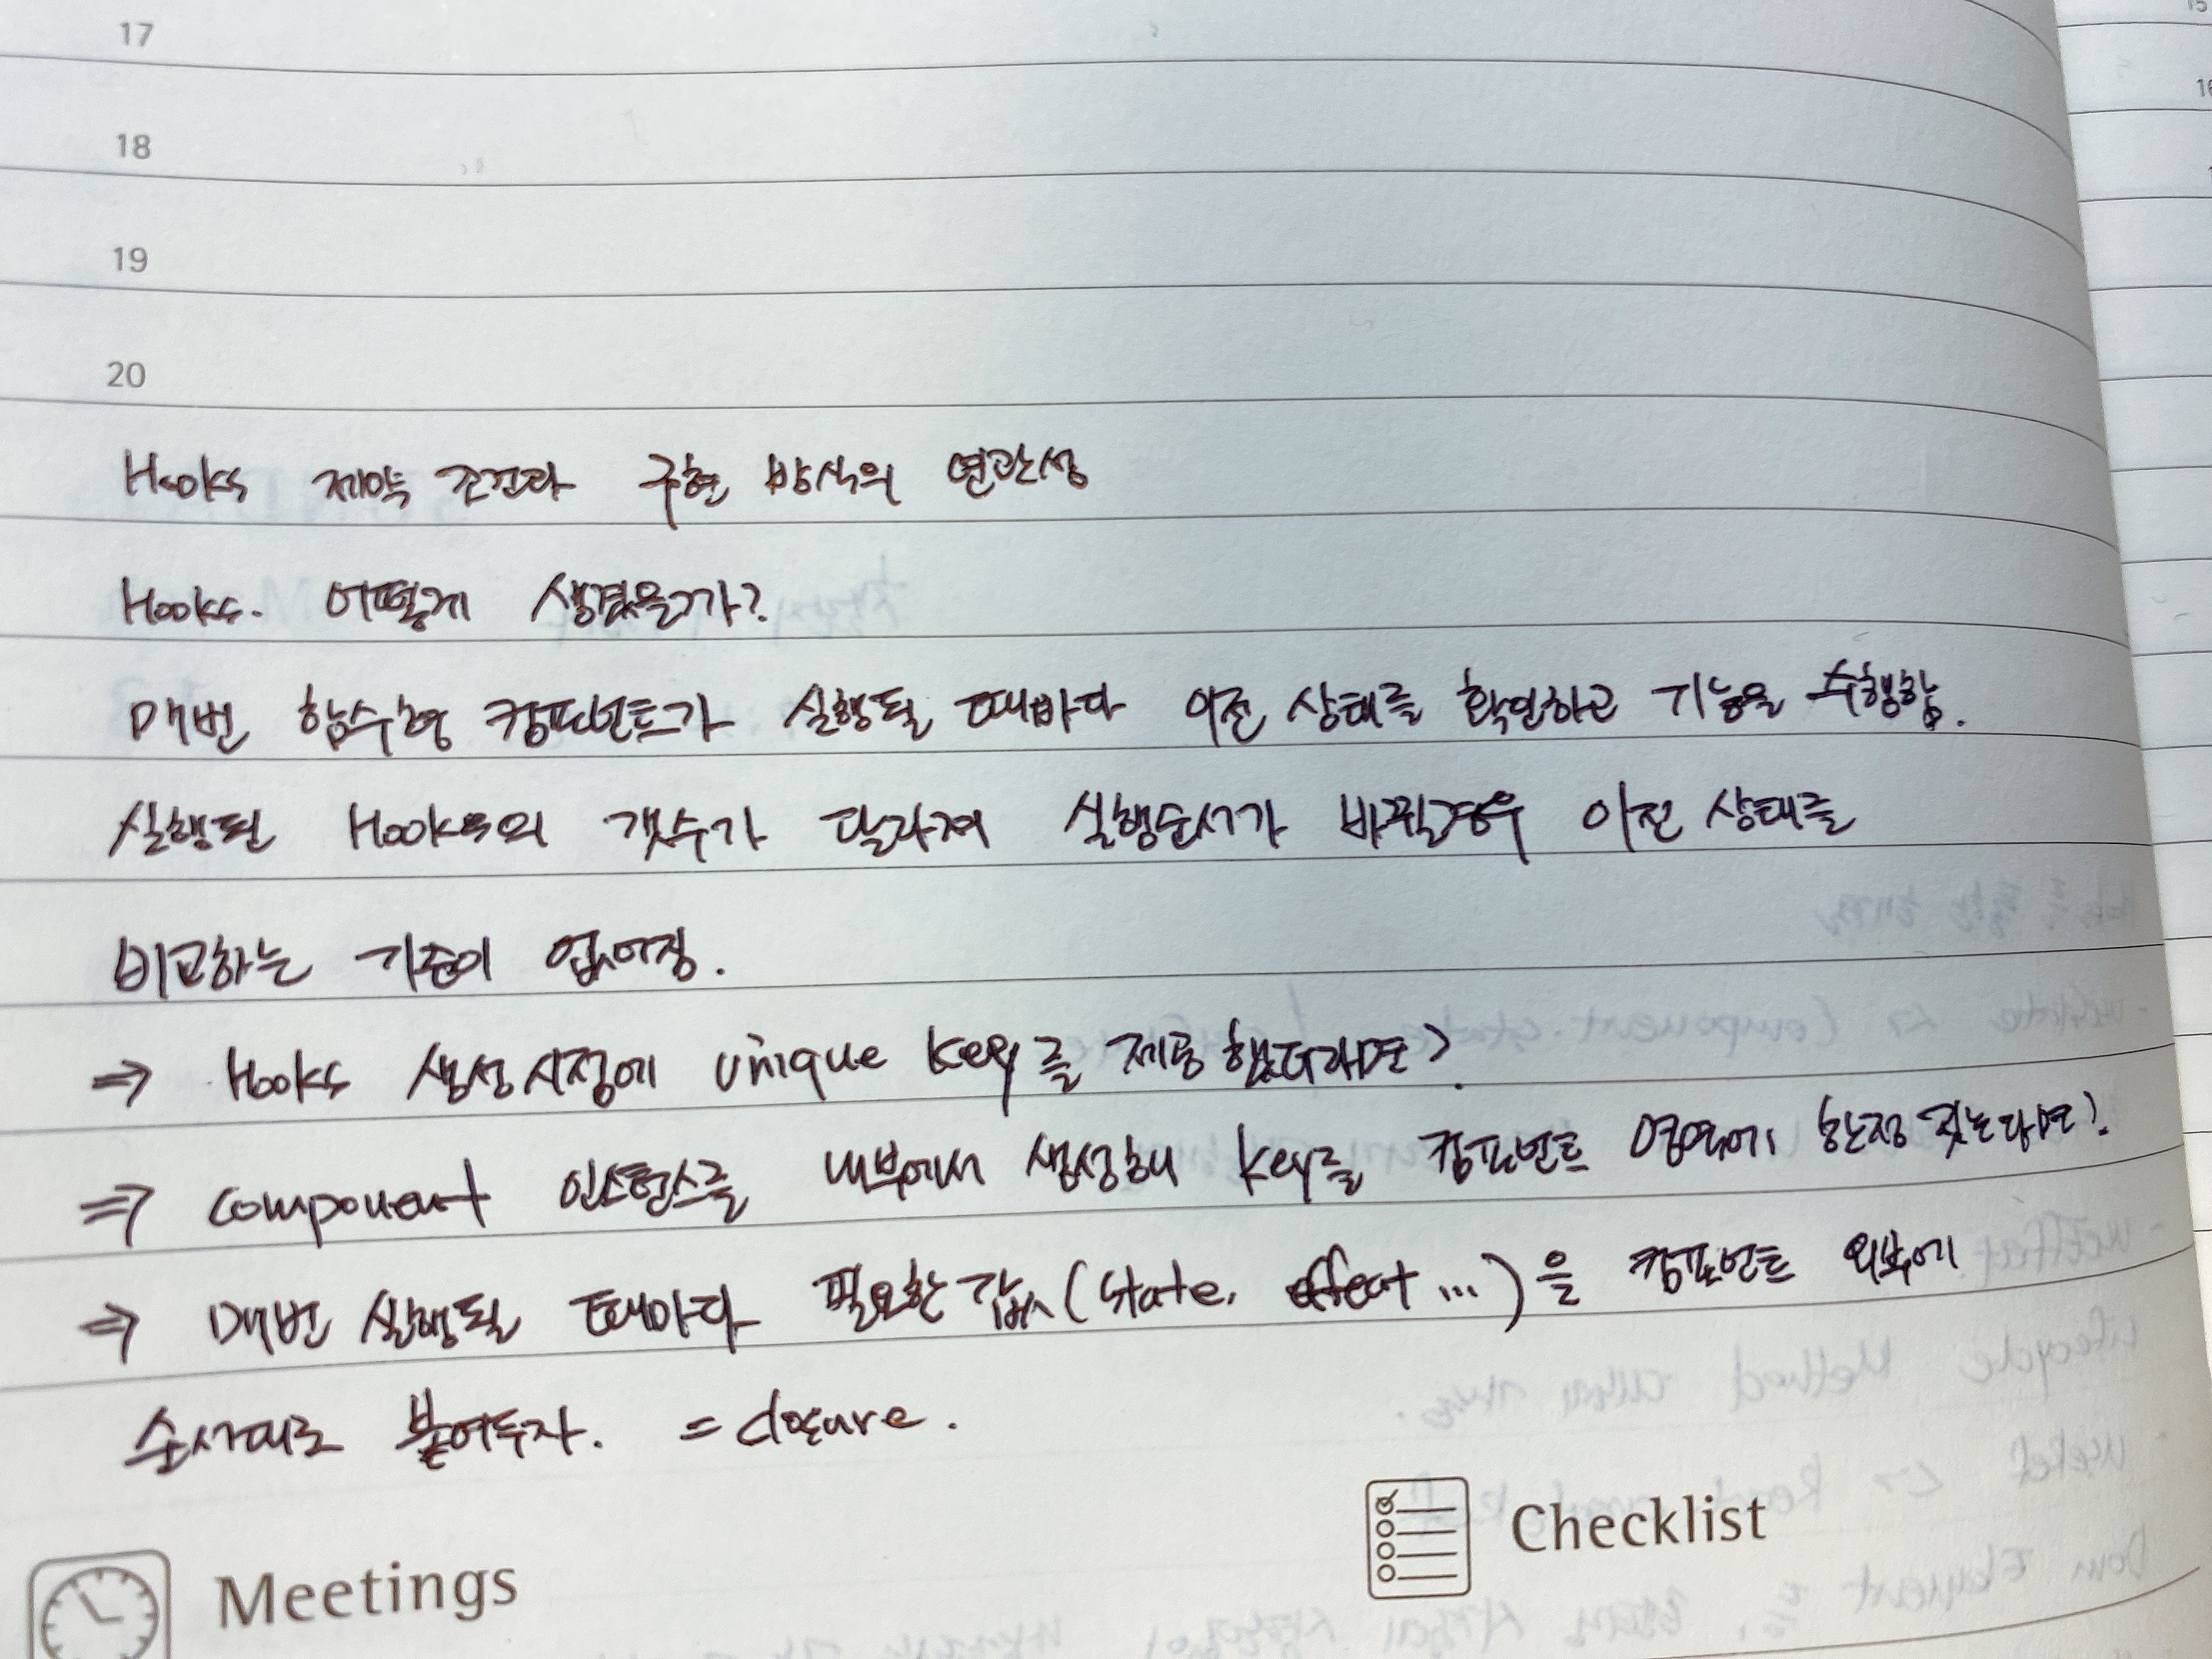 17
18
19
20
Hooks 제약 조건과 구현 방식의 연관성
Hooks. 어떻게 생겼을까?
매번 함수형 컴포넌트가 실행될 때마다 이전 상태를 확인하고 기능을 수행함.
실행된 Hooks의 갯수가 달라져 실행순서가 바뀔경우 이전 상태를
비교하는 기준이 없어짐.
⇒ Hooks 생성시점에 unique key를 제공했더라면?
⇒ component 인스턴스를 내부에서 생성해 key를 컴포넌트 영역에 한정 짓는다면?
⇒ 매번 실행될 때마다 필요한 값(state, effect ...)을 컴포넌트 외부에
순서대로 붙여두자. = closure.
Checklist
Meetings
15
16